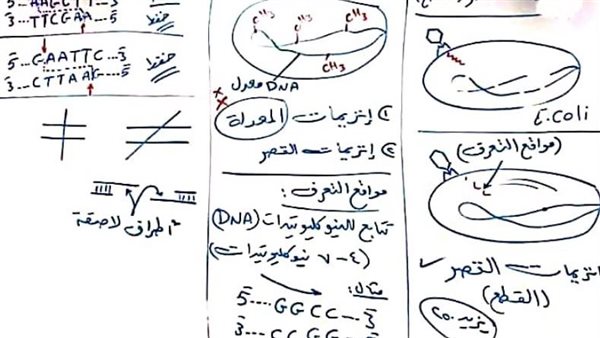 5...AAGCTT...3
3...TTCGAA...5
حفظ
5...GAATTC...3
3...CTTAAG...5
حفظ
أطراف لاصقة
CH3
CH3
CH3
CH3
DNA معدل
① إنزيمات المعدلة
② إنزيمات القصر
مواقع التعرف:
تتابع للنيوكليوتيدات (DNA)
(٤-٧ نيوكليوتيدات)
مثال:
5....GGCC...3
3...CCGG
E.Coli
(مواقع التعرف)
إنزيمات القصر
(القطع)